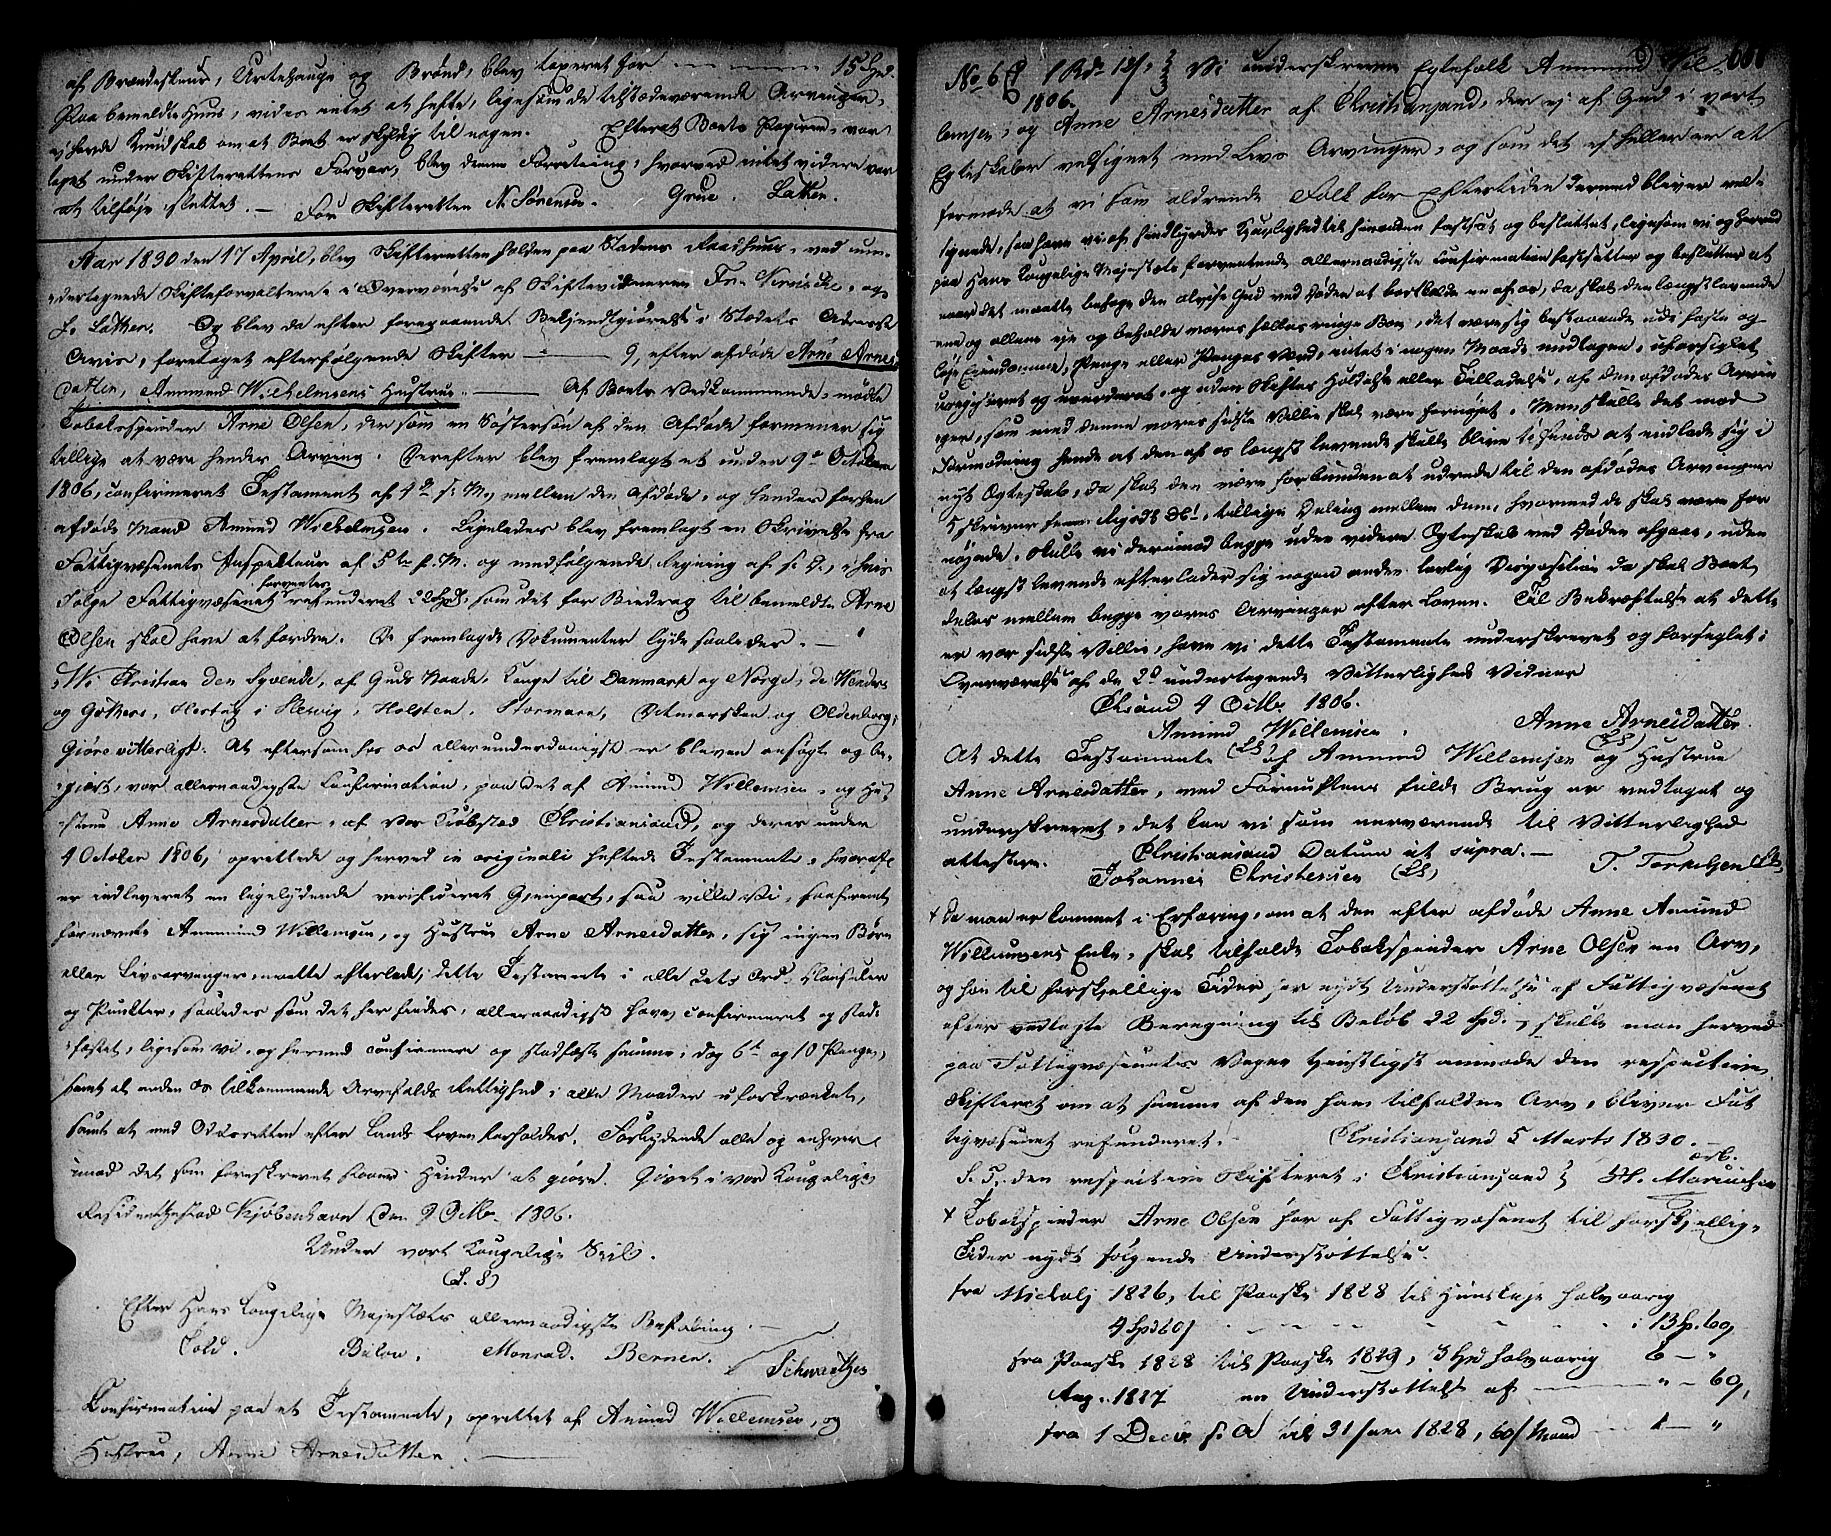 af Brændeskuur, Urtehauge og Brønd, blev taxeret for 15 Spd.
Paa bemeldte Huus, vides intet at hefte, ligesom de tilstædeværende Arvinger,
ej havde Kundskab om at Boet er skyldig til nogen. Efterat Boets Papirer, var
taget under Skifterettens Forvar, blev denne Forretning, hvorved intet videre var
at tilføje sluttet. For Skifteretten N. Sørensen. Grue. Lassen.
Aar 1830 den 17 April, blev Skifteretten holden paa Stadens Raadhuus, ved un-
dertegnede Skifteforvaltere i Overværelse af Skiftevidnerne og
Og blev da efter foregaaende Bekjendtgjørelse i Stedets Adresse
Avis, foretaget efterfølgende Skifter 9, efter afdøde Arne Arnes
datter, Ammund Wilhelmsens Hustrue. Af Boets Vedkommende, mødte
Tobakspinder Arne Olsen, der som en Søstersøn af den Afdøde formener sig
tillige at være hendes Arving. Derefter blev fremlagt et under 9de October
1806, confirmeret Testament af 4de s. M. mellem den Afdøde, og hendes forhen
afdøde Mand Amund Wilhelmsen. Ligeledes blev fremlagt en Skrivelse fra
Fattigvæsenets Inspecteur af 5te f. M. og medfølgende Regning af s. D., i hvis
Følge Fattigvæsenet forventes refunderet 22 Spd. som det for Bidrag til bemeldte Arne
Olsen skal have at fordre. De fremlagde Dokumenter lyde saaledes.
Wi Christian den Syvende, af Guds Naade, Konge til Danmark og Norge, de Wenders
og Gothers, Hertug i Slesvig, Holsten, Stormarn, Ditmarsken og Oldenborg,
Gjøre vitterligt: At eftersom hos os allerunderdanigst er bleven ansøgt og be-
giært, vor allernaadigste Confirmation, paa det af Amund Willemsen, og Hu-
strue Anne Arnesdatter, af Vor Kiøbstæd Christiansand, og deres under
4 October 1806, oprettede og herved in originali heftede Testamente, hvoraf
er indleveret en ligelydende verificeret Gjenpart, saa ville Vi, saafremt
fornævnte Ammund Willemsen, og Hustrue Arne Arnesdatter, sig ingen Børn
eller Livsarvinger, maatte efterlade, dette Testamente i alle dets Ord, Clausuler
og Punkter, saaledes som det her findes, allernaadigst have confirmeret og stad-
fæstet, ligesom vi, og herved confirmere og stadfæste samme; dog 6te og 10 Penge,
samt al anden os tilkommende Arvefalds Rettighed i alle Maader uforkrænket,
samt at med Odelsretten efter Lands Loven forholdes. Forbydende alle og enhver
imod det som foreskrevet staaer Hinder at gjøre. Givet i vor Kongelige
Residentzstad Kjøbenhavn den 9 Octbr. 1806.
Under vort Kongelige Seil.
(L. S)
Efter Hans Kongelige Majestæts allernaadigste Befaling.
Cold. Bülow. Monrad. Berner. Schwartzen
Confirmation paa et Testamente, oprettet af Amund Willemsen, og
Hustrue, Anne Arnesdatter.
No 6 1 Rd. 12 s. Vi underskrevne Egtefolk Ammund Wil-
1806.
lemsen, og Anne Arnesdatter af Christiansand, der ej af Gud i vort
Egteskab er velsignet med Livs Arvinger, og som det ej heller er at
formode, at vi som aldrende Folk for Eftertiden dermed bliver vel-
signede, saa have vi af sindbyrdes Kjærlighed til hinanden fastsat og besluttet, ligesom vi og herved
paa Hans Kongelige Majestæts forventende allernaadigste Confirmation fastsætter og beslutter at
naar det maatte behage den alvise Gud ved Døden at bortkalde en af os, da skal den længstlevende
ene og allene eje og beholde vores fælles ringe Boe, det være sig bestaaende udi faste og
løse Eiendomme, Penge eller Penges Værd, intet i nogen Maade undtagen, uforseglet
uregistreret og uvurderet, og uden Skiftes Holdelse eller Tilladelse, af den afdødes Arvin
ger, som med denne vores sidste Villie skal være fornøjet. Men skulle det mod
Formodning hende at den af os længst levende skulle blive tilsinds at indlade sig i
nyt Egteskab, da skal den være forbunden at udrede til den afdødes Arvinger
5 skriver fem Rigsdlr. tillige Deling mellem dem, hvormed de skal være for
nøjede. Skulle vi derimod begge uden videre Egteskab ved Døden afgaae, uden
at længstlevende efterlader sig nogen anden lovlig Disposition da skal Boet
deles mellem begge vores Arvinger efter Loven. Til Bekræftelse at dette
er vor sidste Villie, have vi dette Testamente underskrevet og forseglet i
Overværelse af de 2de undertegnede Vitterligheds Vidner
Chrsand 4 Octbr 1806.
Amund Willemsen. Anne Arnesdatter
(LS) (LS)
At dette Testamente af Ammund Willemsen og Hustrue
Anne Arnesdatter, med Fornuftens fulde Brug er vedtaget og
underskrevet, det kan vi som nærværende til Vitterlighed
attestere. Christiansand Datum ut supra.
Johannes Christensen (LS) T. Torkelsen (LS)
+ Da man er kommet i Erfaring, om at den efter afdøde Anne Amund
Willumsens Enke, skal tilfalde Tobakspinder Arne Olsen en Arv,
og han til forskjellige Tider har nydt Understøttelse af Fattigvæsenet
efter vedlagte Beregning til Beløb 22 Spd. skulle man herved
paa Fattigvæsenets Vegne tjenstligst anmode den respective
Skifteret om at samme af den ham tilfaldne Arv, bliver Fat
tigvæsenet refunderet. Christiansand 5 Marts 1830.
ærb.
S. T. den respective Skifteret i Christiansand
+ Tobakspinder Arne Olsen har af Fattigvæsenet til forskjellige
Tider nydt følgende Understøttelse.
fra Michaelj 1826, til Paaske 1828 til Huusleje halvaarig
4 Spd 60 s i 13 Sp. 60,
fra Paaske 1828 til Paaske 1829, 3 Spd halvaarig 6 — "
Aug. 1827 en Understøttelse af " — 60,
fra 1 Decbr s. A til 31 Jan 1828, 60 s Maaned 1 — "